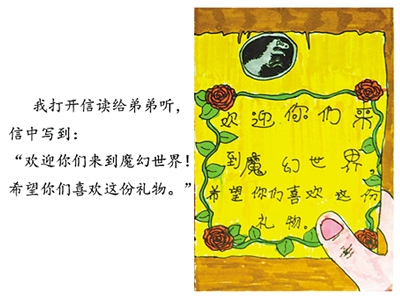 我打开信读给弟弟听，
信中写到：
“欢迎你们来到魔幻世界！
希望你们喜欢这份礼物。”
欢迎你们来
到魔幻世界，
希望你们喜欢这份
礼物。